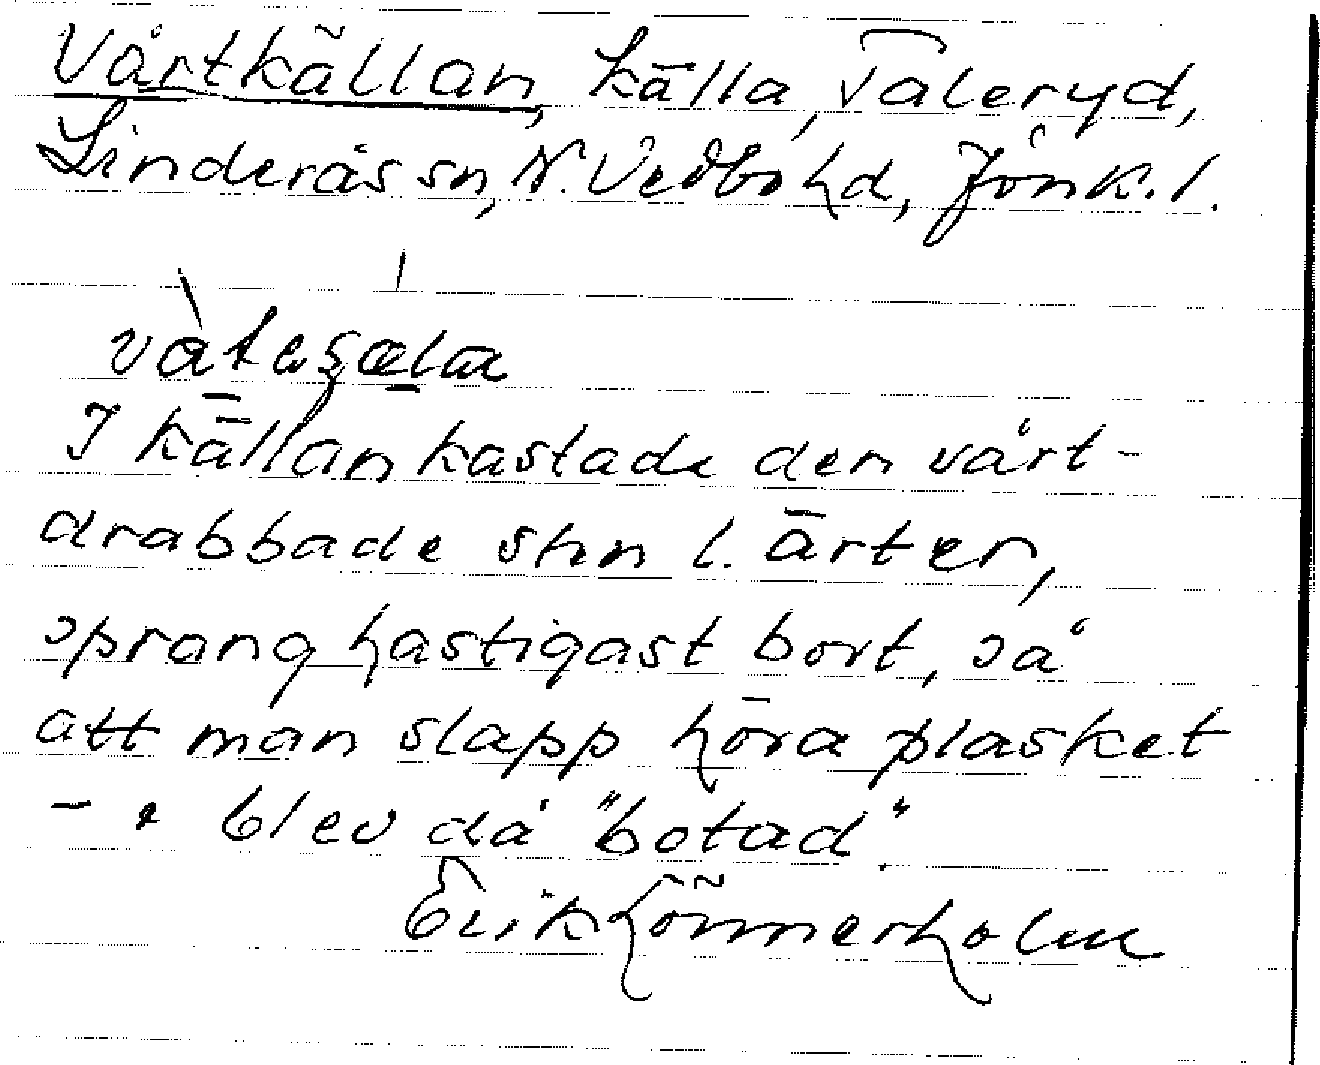 Vårtkällan, källa, Taleryd,
Linderås sn, N. Vedbo hd, Jönk. l.
I källan kastade den vårt-
drabbade sten l. ärter,
sprang hastigast bort, så
att man slapp höra plasket
- o blev då "botad".
Erik Lönnerholm